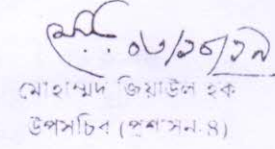 ০৩/১০/১৯
মোহাম্মদ জিয়াউল হক
উপসচিব (প্রশাসন-৪)